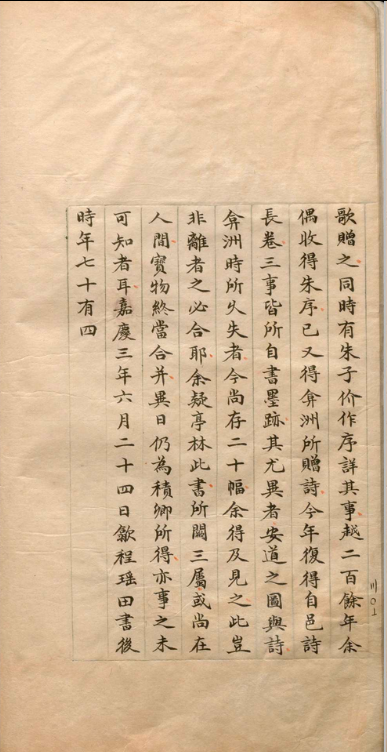 歌贈之同時有朱子价作序詳其事越二百餘年余
偶收得朱序已又得弇洲所贈詩今年復得自邑詩
長卷三事皆所自書墨跡其尤異者安道之圖與詩
弇洲時所久失者今尚存二十幅余得及見之此豈
非離者之必合耶余疑亭林此書所闕三屬或尚在
人間寶物終當合并異日仍為積卿所得亦事之未
可知者耳嘉慶三年六月二十四日歙程瑶田書後
時年七十有四